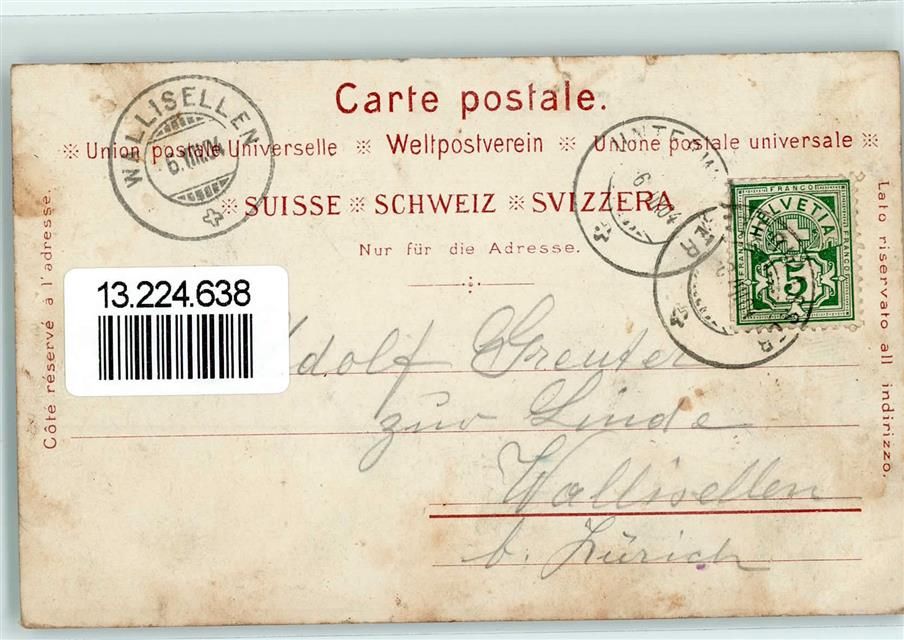 Carte postale.
※ Union postale Universelle ※ Weltpostverein ※ Unione postale universale ※
※ SUISSE ※ SCHWEIZ ※ SVIZZERA
Nur für die Adresse.
WALLISELLEN
FRANCO
HELVETIA
FRANCO
FRANCO
5
Côté réservé à l'adresse.
Lato riservato all indirizzo.
13.224.638
Adolf Greuter
zur Linde
Wallisellen
b. Zürich